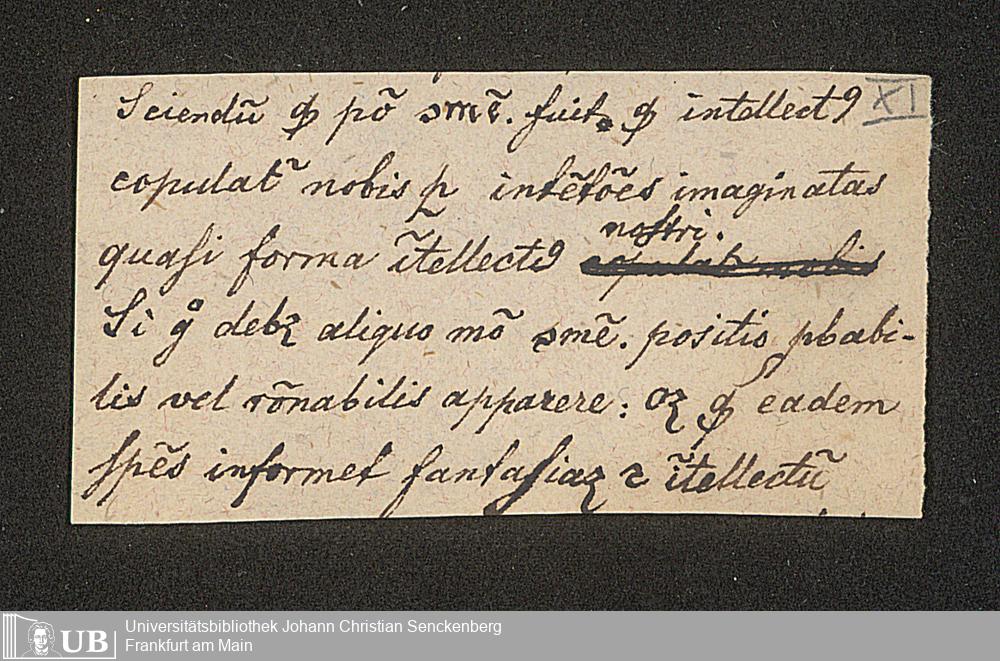 Sciendū ꝙ pō smē. fuit ꝙ intellectꝰ
XI
copulat᷑ nobis ꝑ intētōes imaginatas
nostri.
quaſi forma ītellectꝰ
Si gͦ debꝫ aliquo mō smē. positio ꝓbabi-
lis vel rōnabilis apparere: oꝫ ꝙ eadem
ſpēs informet fantaſiaꝫ ⁊ ītellectū
UB
Universitätsbibliothek Johann Christian Senckenberg
Frankfurt am Main